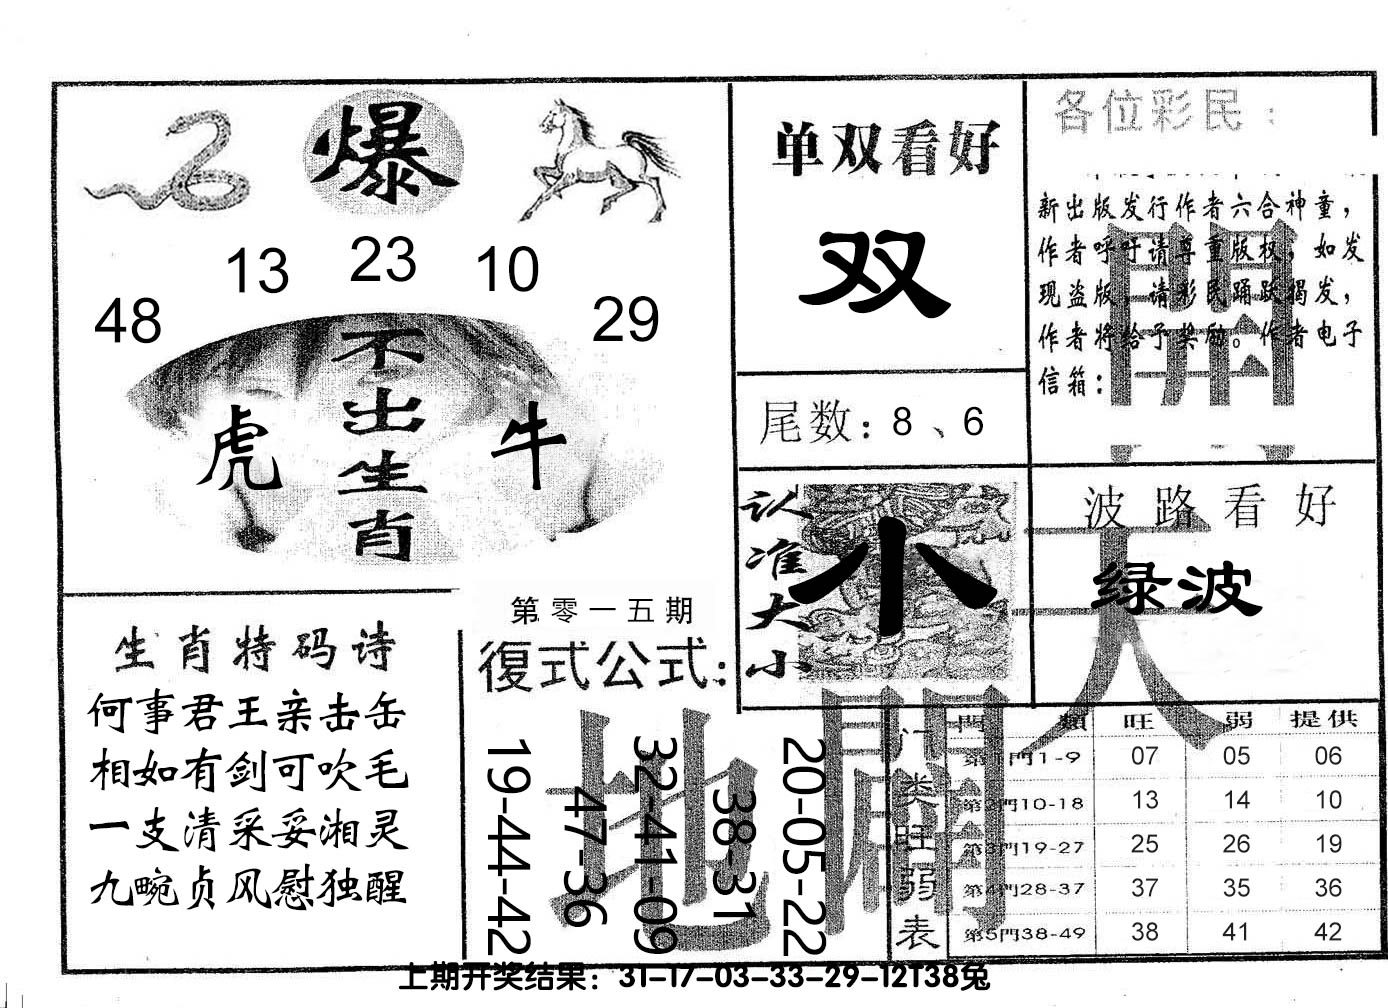 爆
13 23 10
48 29
不出生肖
虎 牛
单双看好
双
尾数：8、6
各位彩民：
新出版发行作者六合神童，
作者呼吁请尊重版权，如发
现盗版，请彩民踊跃揭发，
作者将给予奖励。作者电子
信箱：
認准大小
小
波路看好
绿波
生肖特码诗
何事君王亲击缶
相如有剑可吹毛
一支清采妥湘灵
九畹贞风慰独醒
第零一五期
復式公式：
19-44-42
47-36
32-41-09
38-31
20-05-22
天
地
門类旺弱表
門類 旺 弱 提供
第1門1-9 07 05 06
第2門10-18 13 14 10
第3門19-27 25 26 19
第4門28-37 37 35 36
第5門38-49 38 41 42
上期开奖结果：31-17-03-33-29-12T38兔